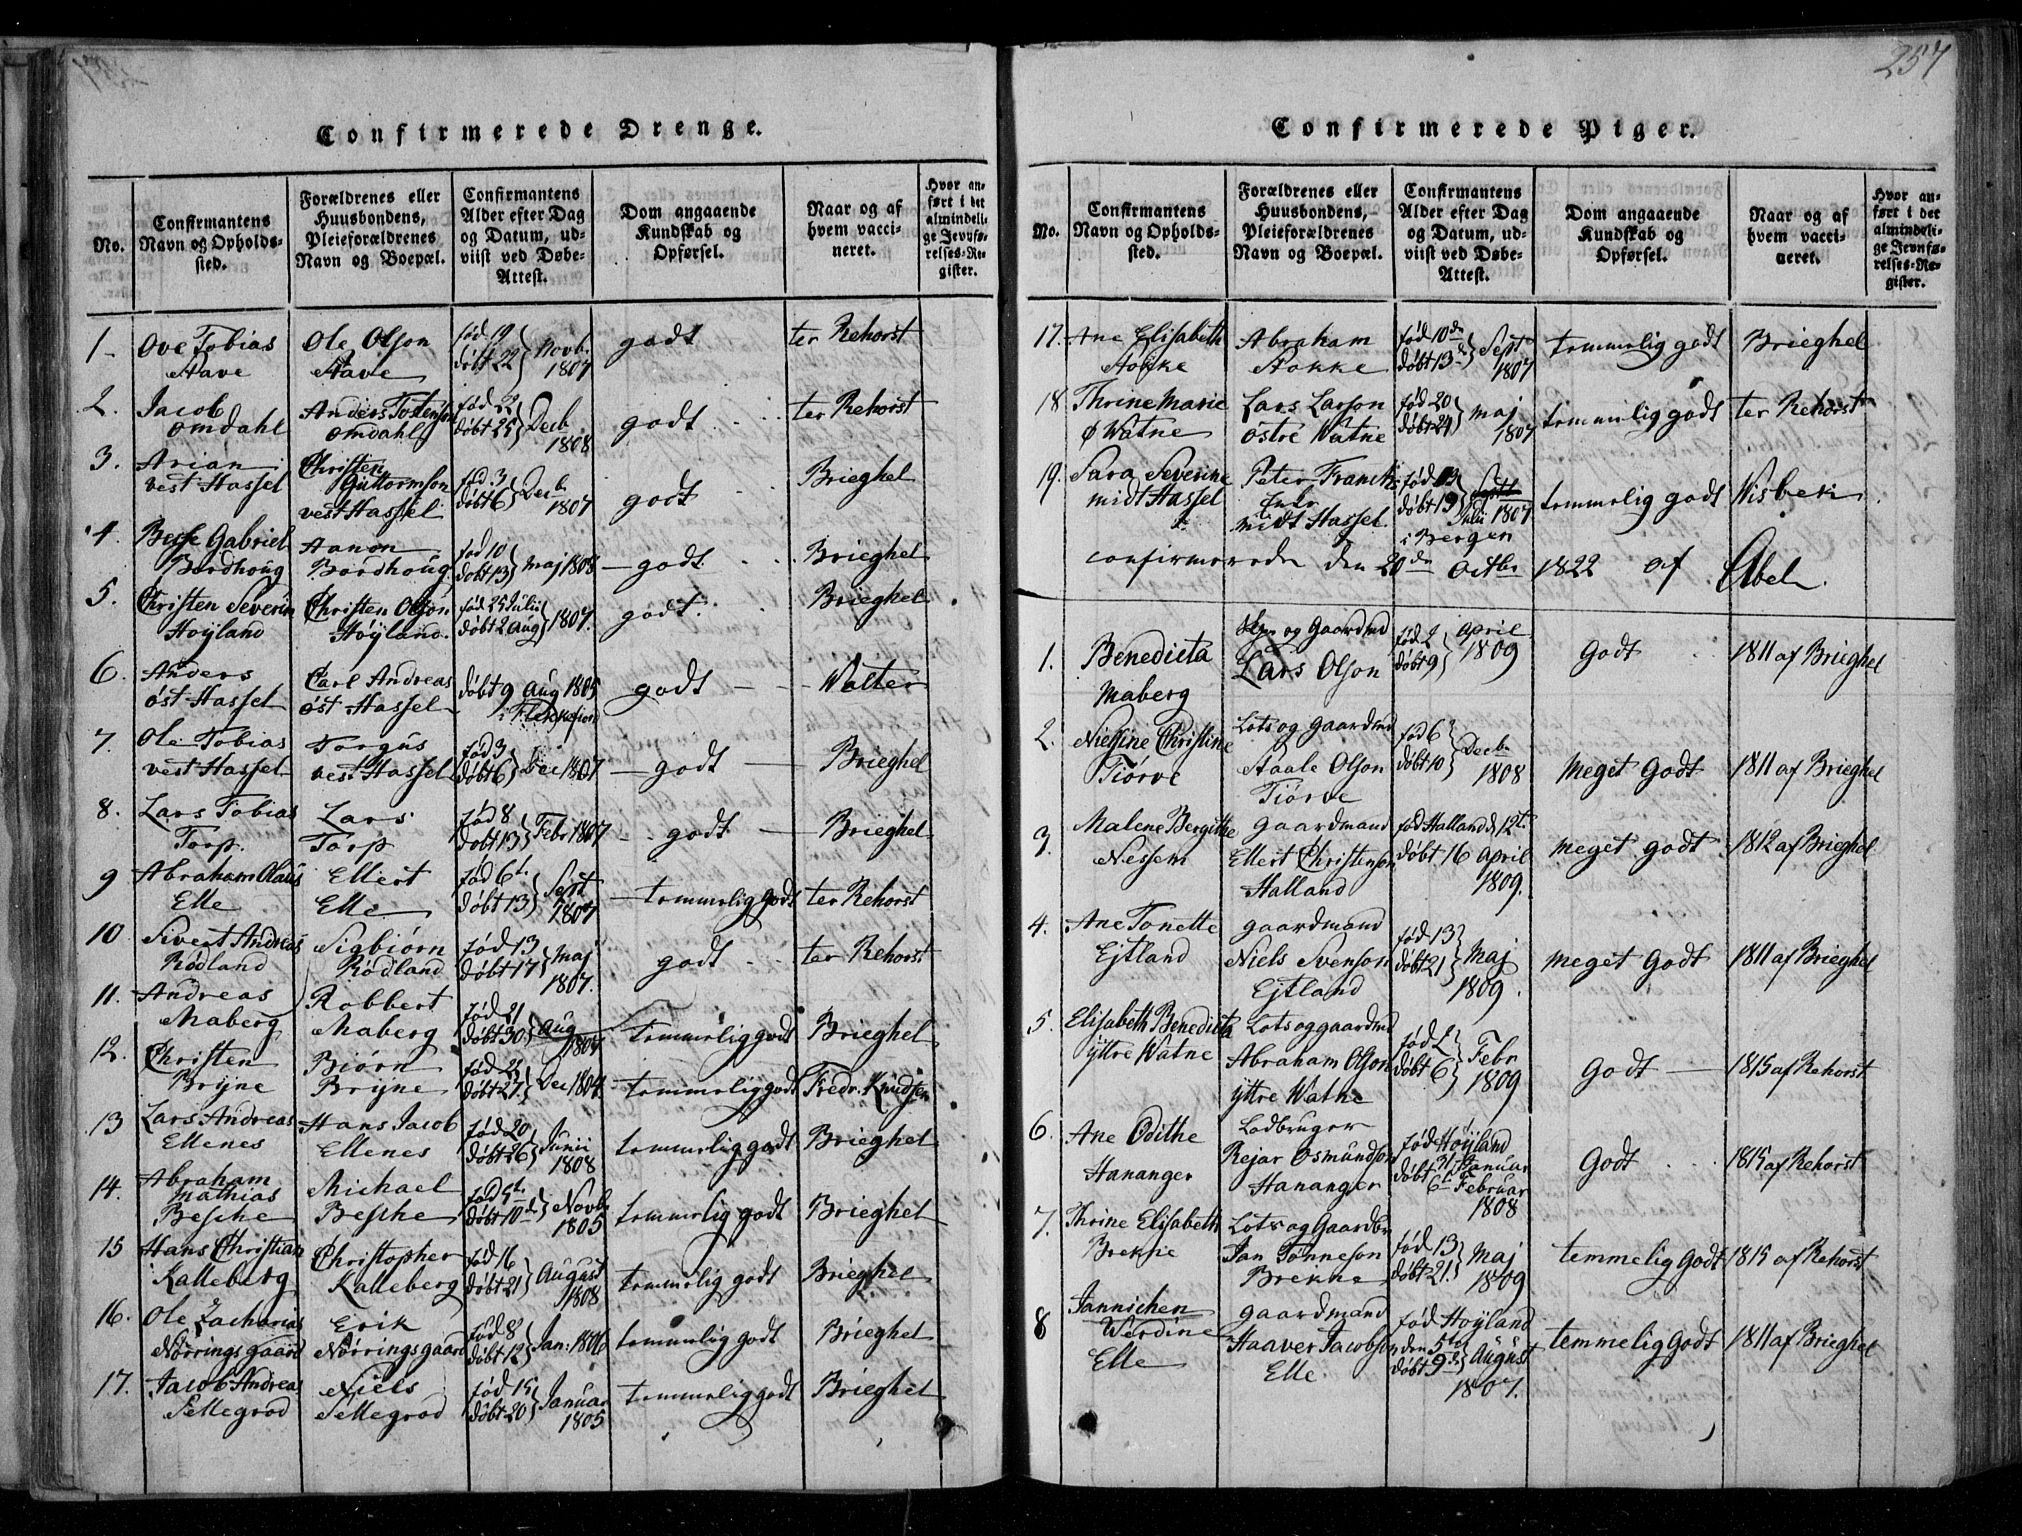 Confirmerede Drenge.
No.
Confirmantens
Navn og Opholds-
sted.
Forældrenes eller
Huusbondens,
Pleieforældrenes
Navn og Boepæl.
Confirmantens
Alder efter Dag
og Datum, ud-
viist ved Døbe-
Attest.
Dom angaaende
Kundskab og
Opførsel.
Naar og af
hvem vacci-
neret.
Hvor an-
ført i det
almindeli-
ge Jevnfø-
relses-Re-
gister.
1 Ove Tobias Ole Olson født 19 Novb. godt ter Rehorst
Stave Stave døbt 22 1807
2. Jacob Anders Tostenson født 22 Decb godt ter Rehorst
Omdahl Omdahl døbt 25 1808
3. Arian Christen Guttormson født 3 Decb. godt Brieghel
vest Hassel vest Hassel døbt 6 1807
4. Gabriel Aanon født 10 maj 1808 godt Brieghel
Bordhoug Bordhoug døbt 13
5. Christen Severin Christen Olson født 25 Julii 1807. godt Brieghel
Høyland Høyland. døbt 2 Aug
6. Anders Carl Andreas døbt 9 Aug 1805 godt Walter
øst Hassel øst Hassel i Flekkefiord
7. Ole Tobias Torgus født 3 Dec 1807 godt Brieghel
vest Hassel vest Hassel døbt 6
8. Lars Tobias Lars født 8 Febr 1807 godt Brieghel
Torp. Torp døbt 13
9 Abraham Olaus Ellert født 6t. Sept temmelig godt ter Rehorst
Elle Elle døbt 13 1807
10 Sivert Andreas Sigbiørn født 13 maj godt ter Rehorst
Rødland Rødland døbt 17 1807.
11. Andreas Robbert født 21 Aug temmelig godt Brieghel
Maberg Maberg døbt 30
12. Christen Biørn født 22 Dec 1804 temmelig godt Fredr. Knudsen
Bryne Bryne døbt 27
13 Lars Andreas Hans Jacob født 20 Junii temmelig godt Brieghel
Ellenes Ellenes døbt 26 1808
14. Abraham Mathias Michael født 5t. Novb. temmelig godt Brieghel
Besche Besche døbt 10d 1805
15 Hans Christian Christopher født 16 August temmelig godt Brieghel
Kalleberg Kalleberg døbt 21 1808
16. Ole Zacharias Erik født 8 Jan: 1806 temmelig godt Brieghel
Nørringsgaard Nørringsgaard døbt 12
17. Jacob Andreas Niels født 15 Januar temmelig godt Brieghel
Sellegrod Sellegrod døbt 20 1805
257
Confirmerede Piger.
No.
Confirmantens
Navn og Opholds-
sted.
Forældrenes eller
Huusbondens,
Pleieforældrenes
Navn og Boepæl.
Confirmantens
Alder efter Dag
og Datum, ud-
viist ved Døbe-
Attest.
Dom angaaende
Kundskab og
Opførsel.
Naar og af
hvem vacci-
neret.
Hvor an-
ført i det
almindeli-
ge Jevnfø-
relses-Re-
gister.
17. Ane Elisabeth Abraham født 10de Sept temmelig godt Brieghel
Stokke Stokke døbt 13d 1807
18 Thrine Marie Lars Larson født 20 maj temmelig godt ter Rehorst
Ø Watne østre Watne døbt 24 1807
19. Sara Severine Peter Franck født 13 temmelig godt Wisbek
midt Hassel midt Hassel. døbt 19 Julii 1807
i Bergen
confirmerede den 20de Octbr 1822 af Abel.
1. Benedicta og Gaardmd født 2 April Godt 1811 af Brieghel
Maberg Lars Olson døbt 9 1809
2. Nielsine Christine Lots og gaardmd født 6 Decb. meget Godt 1811 af Brieghel
Tiørve Staale Olson døbt 10 1808
Tiørve
3. Malene Bergithe gaardmand født Halland d. 12t. meget godt 1812 af Brieghel
Nessem Ellert Christenson døbt 16 April
Halland 1809.
4. Ane Tonette gaardmand født 13 Maj meget Godt 1811 af Brieghel
Ejtland Niels Svenson døbt 21 1809.
Ejtland
5. Elisabeth Benedicta Lots og gaardmd født 2 Febr Godt 1815 af Rehorst
yttre Watne Abraham Olson døbt 6 1809
yttre Watne
6. Ane Odithe Ladbruger født Høyland Godt 1815 af Rehorst
Hananger Rejar Osmundson 31 Januar
Hananger døbt 6te Februar
1808
7. Thrine Elisabeth Lots og Gaardbr født 13 Maj temmelig Godt 1815 af Rehorst
Brekne Jan Tønneson døbt 21. 1809
Brekne
8 Jannichen gaardmand født Høyland temmelig Godt 1811 af Brieghel
Werdine Haaver Jacobson den 5te August
Elle Elle. døbt 9de 1807.